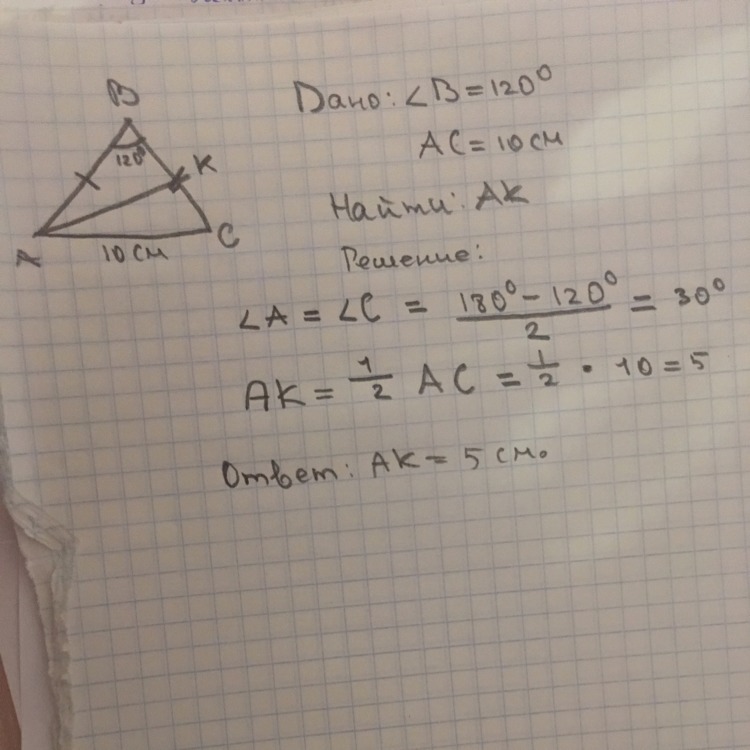 B
120°
K
A
C
10 см
Дано: ∠B = 120°
AC = 10 см
Найти: AK
Решение:
∠A = ∠C = (180° - 120°) / 2 = 30°
AK = 1/2 AC = 1/2 · 10 = 5
Ответ: AK = 5 см.